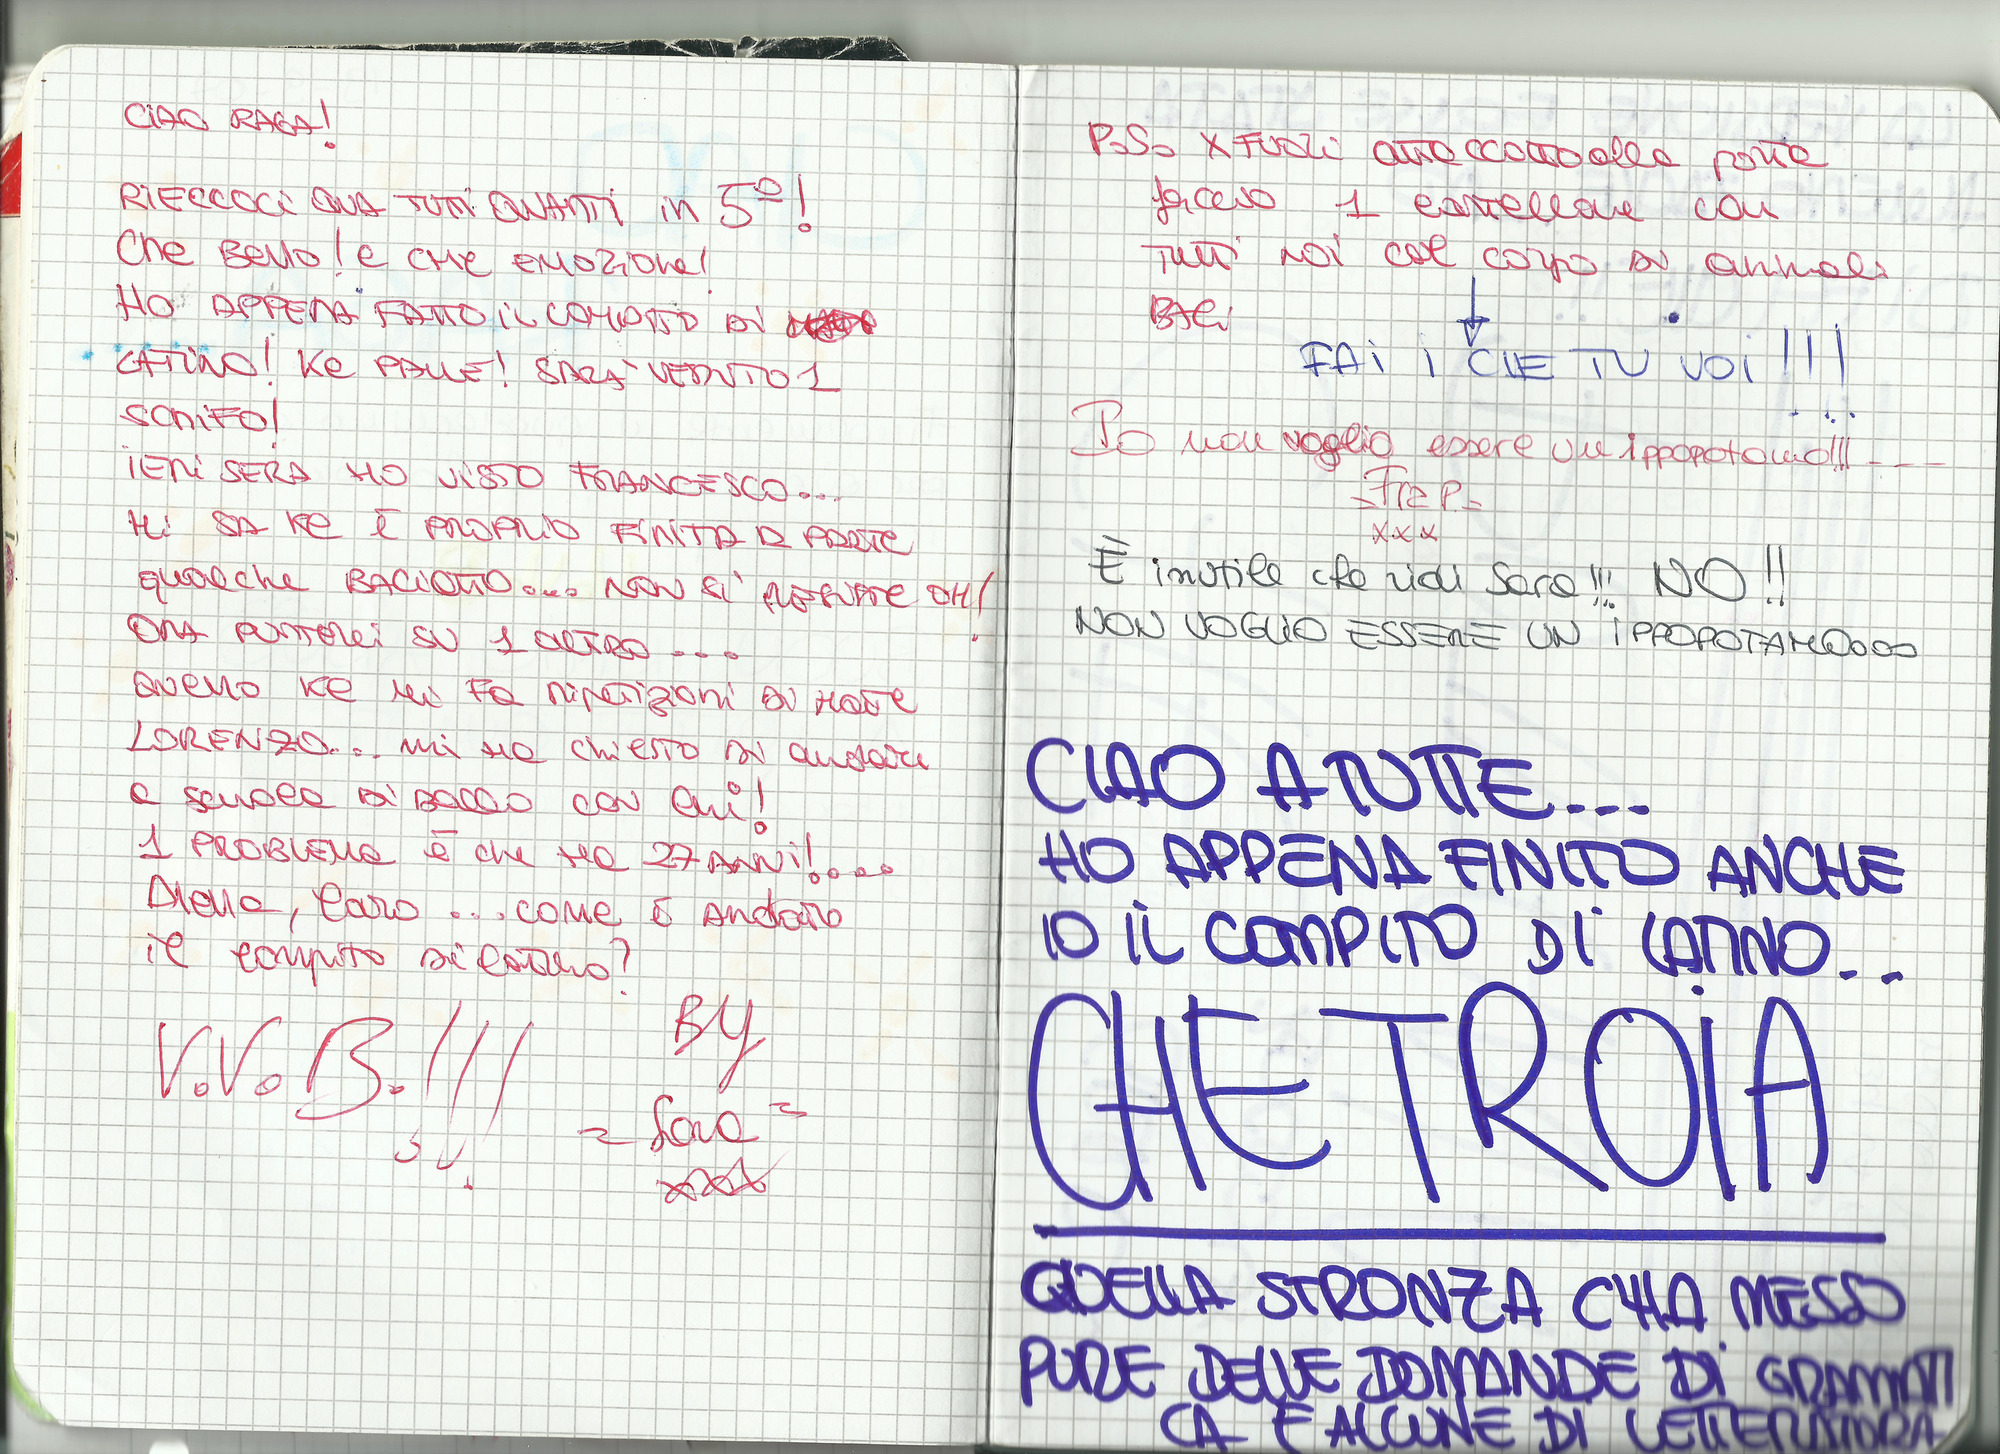 CIAO RAGA!
RIECCOCI QUA TUTTI QUANTI in 5º!
Che BELLO! e CHE EMOZIONE!
HO APPENA FATTO IL COMPITO DI
LATINO! Ke PALLE! SARÀ VENUTO 1
SCHIFO!
IERI SERA HO VISTO FRANCESCO...
MI SA KE È PROPRIO FINITA A PARTE
qualche BACIOTTO.... NON SI RESISTE OH!
ORA PUNTEREI SU 1 ALTRO....
QUELLO KE MI FA RIPETIZIONI DI MATE
LORENZO... mi ha chiesto di andare
a scuola DI BALLO con lui!
1 PROBLEMA è che HA 27 ANNI!....
Diella, Caro ... come è andato
il compito di latino?
V.V.B.!!!
BY
= Sara =
xxx
P.S. X FUORI attaccato alla porte
facevo 1 cartellone con
TUTTI NOI col corpo di animali
BACI
FAI I CHE TU VOI!!!
Io non voglio essere un ippopotamo!!!----
-FraP-
xxx
È inutile che ridi Sara!!! NO!!
NON VOGLIO ESSERE UN IPPOPOTAMOoooo
CIAO A TUTTE...
HO APPENA FINITO ANCHE
IO IL COMPITO DI LATINO...
CHE TROIA
QUELLA STRONZA CHA MESSO
PURE DELLE DOMANDE DI GRAMMATI
CA E ALCUNE DI LETTERATURA